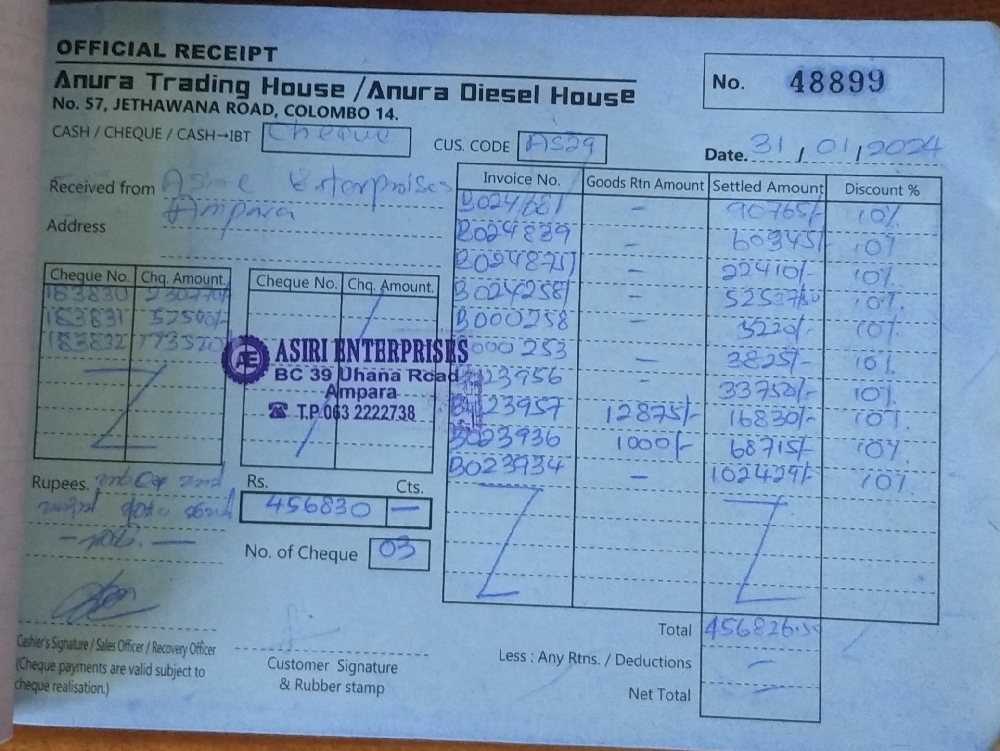 OFFICIAL RECEIPT
Anura Trading House / Anura Diesel House
No. 57, JETHAWANA ROAD, COLOMBO 14.
No. 48899
CASH / CHEQUE / CASH→IBT Cheque
CUS. CODE AS29
Date. 31 / 01 / 2024
Received from Enterprises
Address Ampara
Cheque No. Chq. Amount.
183830 230770/-
183831 52540/-
183832 173520/-
Cheque No. Chq. Amount.
ASIRI ENTERPRISES
BC 39 Uhana Road
Ampara
☎ T.P.063 2222738
Invoice No. Goods Rtn Amount Settled Amount Discount %
B024681 – 90765/- 10%
B024839 – 60345/- 10%
– 22410/- 10%
B024258 – 10%
B000258 – 3220/- 10%
000253 3825/- 10%
23956 – 33750/- 10%
23957 12875/- 16830/- 10%
B023936 1000/- 68715/- 10%
B023934 – 102429/- 10%
Rupees.
Rs. Cts.
456830 –
No. of Cheque 03
Total
Less : Any Rtns. / Deductions –
Net Total
Cashier's Signature / Sales Officer / Recovery Officer
(Cheque payments are valid subject to
cheque realisation.)
Customer Signature
& Rubber stamp